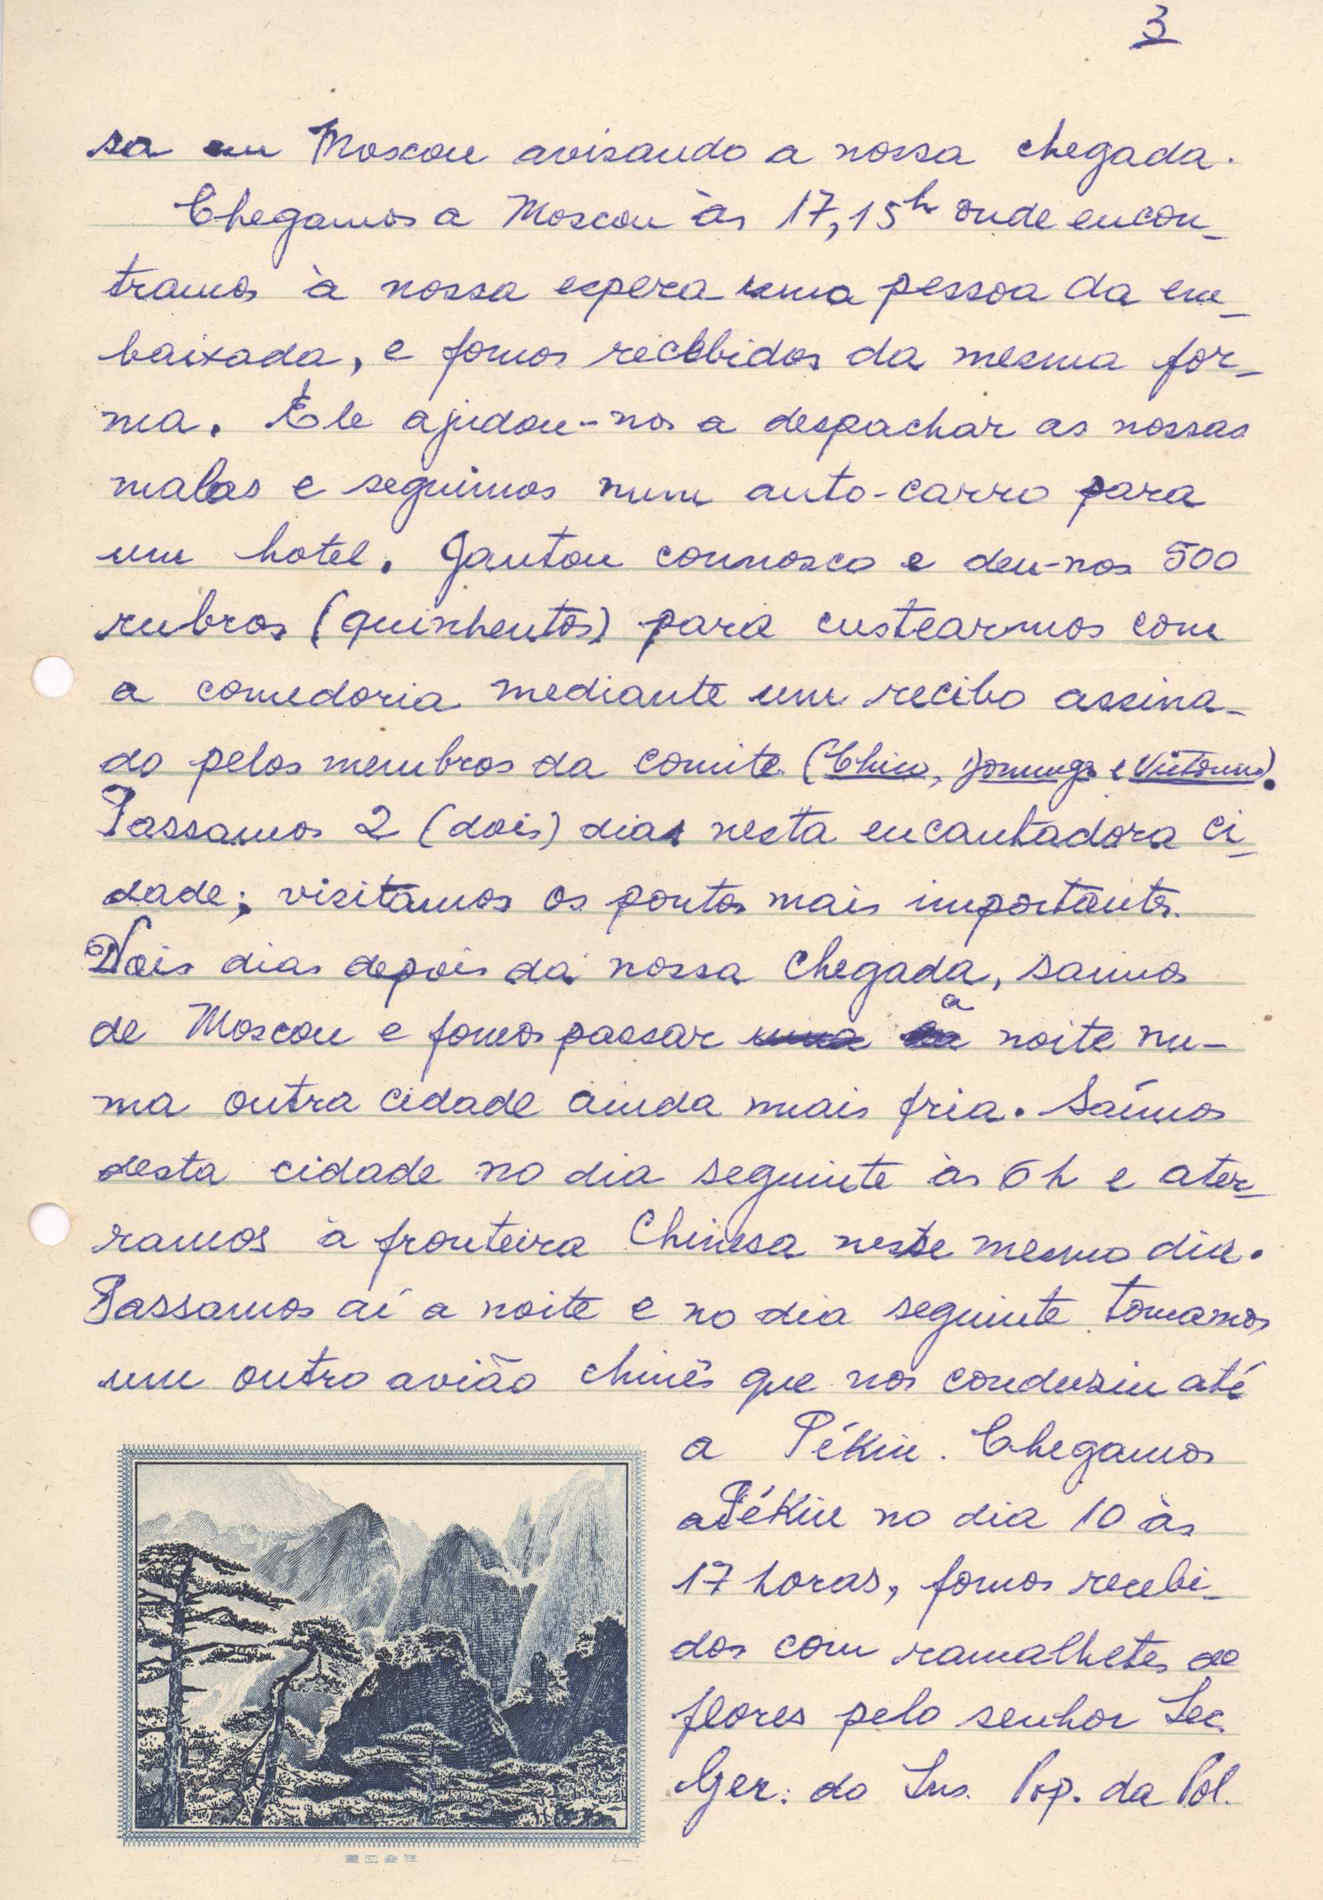 3
sa em Moscou avisando a nossa chegada.
Chegamos a Moscou às 17,15h onde encon-
tramos à nossa espera uma pessoa da em-
baixada, e fomos recebidos da mesma for-
ma. Êle ajudou-nos a despachar as nossas
malas e seguimos num auto-carro para
um hotel. Jantou connosco e deu-nos 500
rubros (quinhentos) para custearmos com
a comedoria mediante um recibo assina-
do pelos membros da comite (Chico, Domingos e Victorino).
Passamos 2 (dois) dias nesta encantadora ci-
dade; visitamos os pontos mais importantes.
Dois dias depois da nossa chegada, saimos
de Moscou e fomos passar a noite nu-
ma outra cidade ainda mais fria. Saímos
desta cidade no dia seguinte às 6h e ater-
ramos à fronteira Chinesa neste mesmo dia.
Passamos aí a noite e no dia seguinte tomamos
um outro avião chinês que nos conduziu até
a Pékin. Chegamos
a Pékin no dia 10 às
17 horas, fomos recebi-
dos com ramalhetes de
flores pelo senhor Sec.
Ger. do Ins. Pop. da Pol.